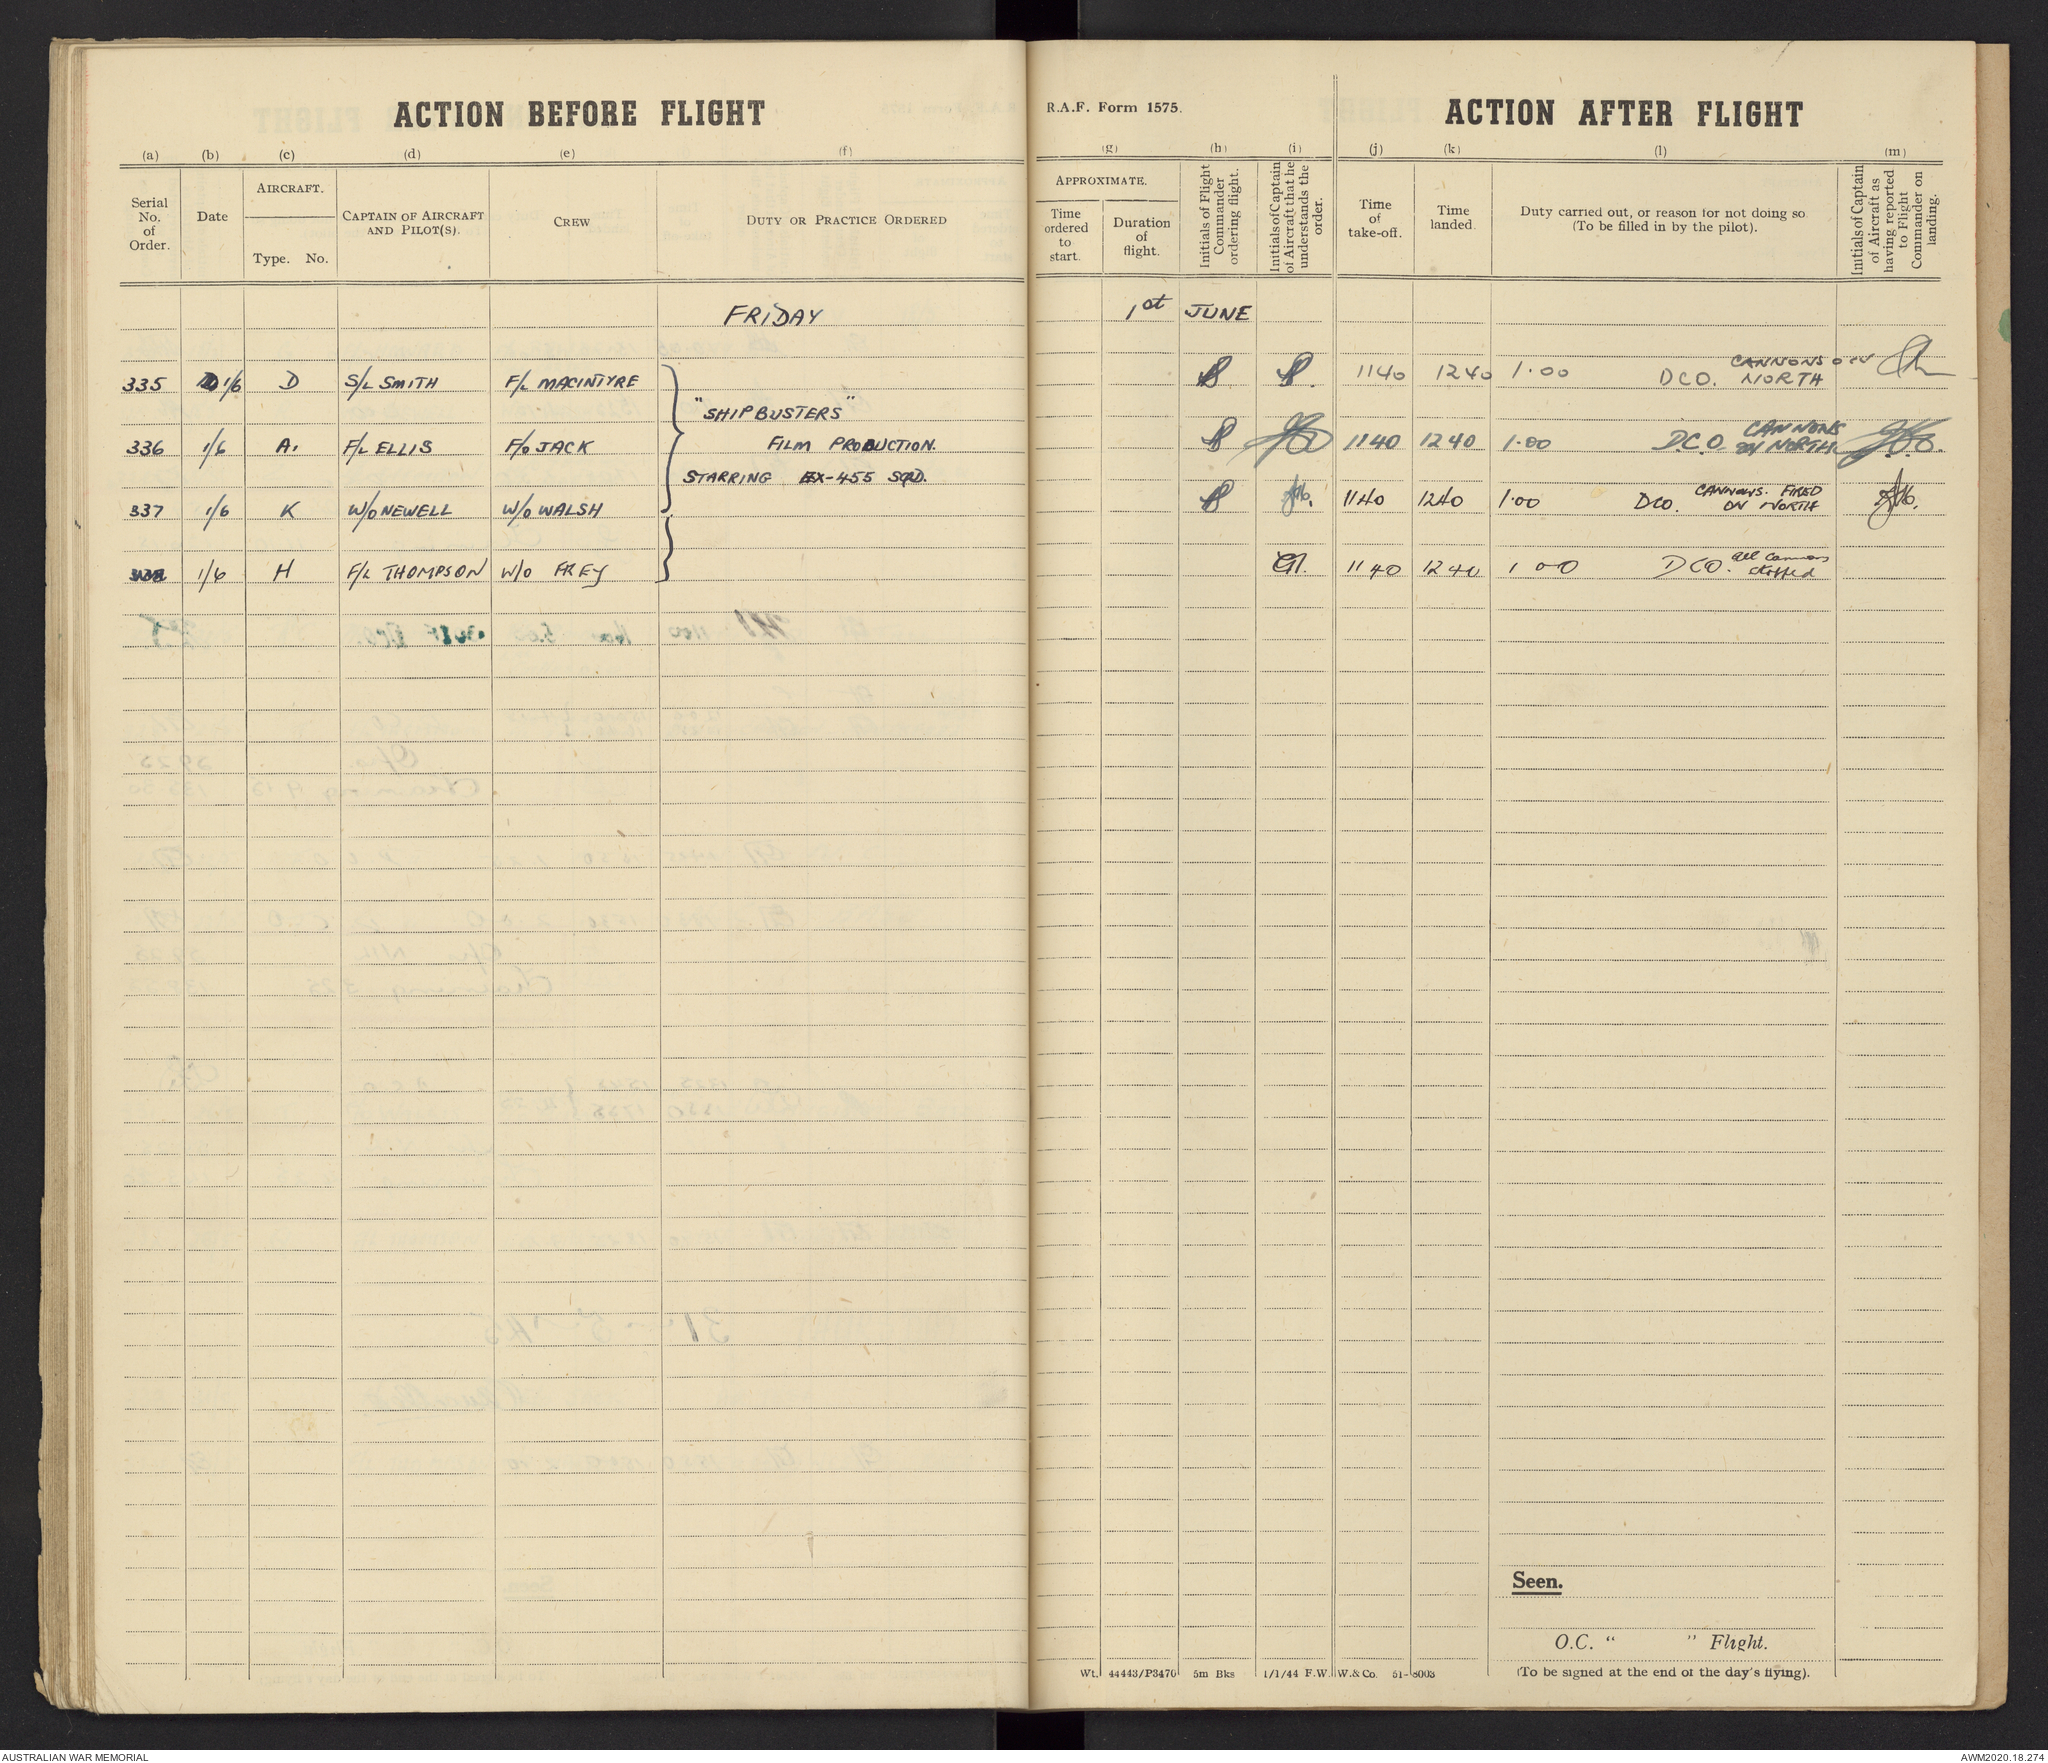 ACTION BEFORE FLIGHT
(a) (b) (c) (d) (e) (f)
Serial No. of Order.
Date
AIRCRAFT.
Type. No.
CAPTAIN OF AIRCRAFT AND PILOT(S).
CREW
DUTY OR PRACTICE ORDERED
FRIDAY
335 1/6 D S/L SMITH F/L MACINTYRE
"SHIPBUSTERS"
336 1/6 A. F/L ELLIS F/O JACK FILM PRODUCTION.
STARRING EX-455 SQD.
337 1/6 K W/O NEWELL W/O WALSH
338 1/6 H F/L THOMPSON W/O FREY
R.A.F. Form 1575.
ACTION AFTER FLIGHT
(g) (h) (i) (j) (k) (l) (m)
APPROXIMATE.
Time ordered to start.
Duration of flight.
Initials of Flight Commander ordering flight.
Initials of Captain of Aircraft that he understands the order.
Time of take-off.
Time landed.
Duty carried out, or reason for not doing so.
(To be filled in by the pilot).
Initials of Captain of Aircraft as having reported to Flight Commander on landing.
1st JUNE
1140 1240 1.00 DCO. CANNONS ON NORTH
1140 1240 1.00 D.C.O. CANNONS ON NORTH
1140 1240 1.00 DCO. CANNONS FIRED ON NORTH
1140 1240 1 00 DCO. All Cannons stopped
Seen.
O.C. " " Flight.
Wt. 44443/P3470 5m Bks 1/1/44 F.W. W.&Co. 51-8003
(To be signed at the end of the day's flying).
AUSTRALIAN WAR MEMORIAL
AWM2020.18.274